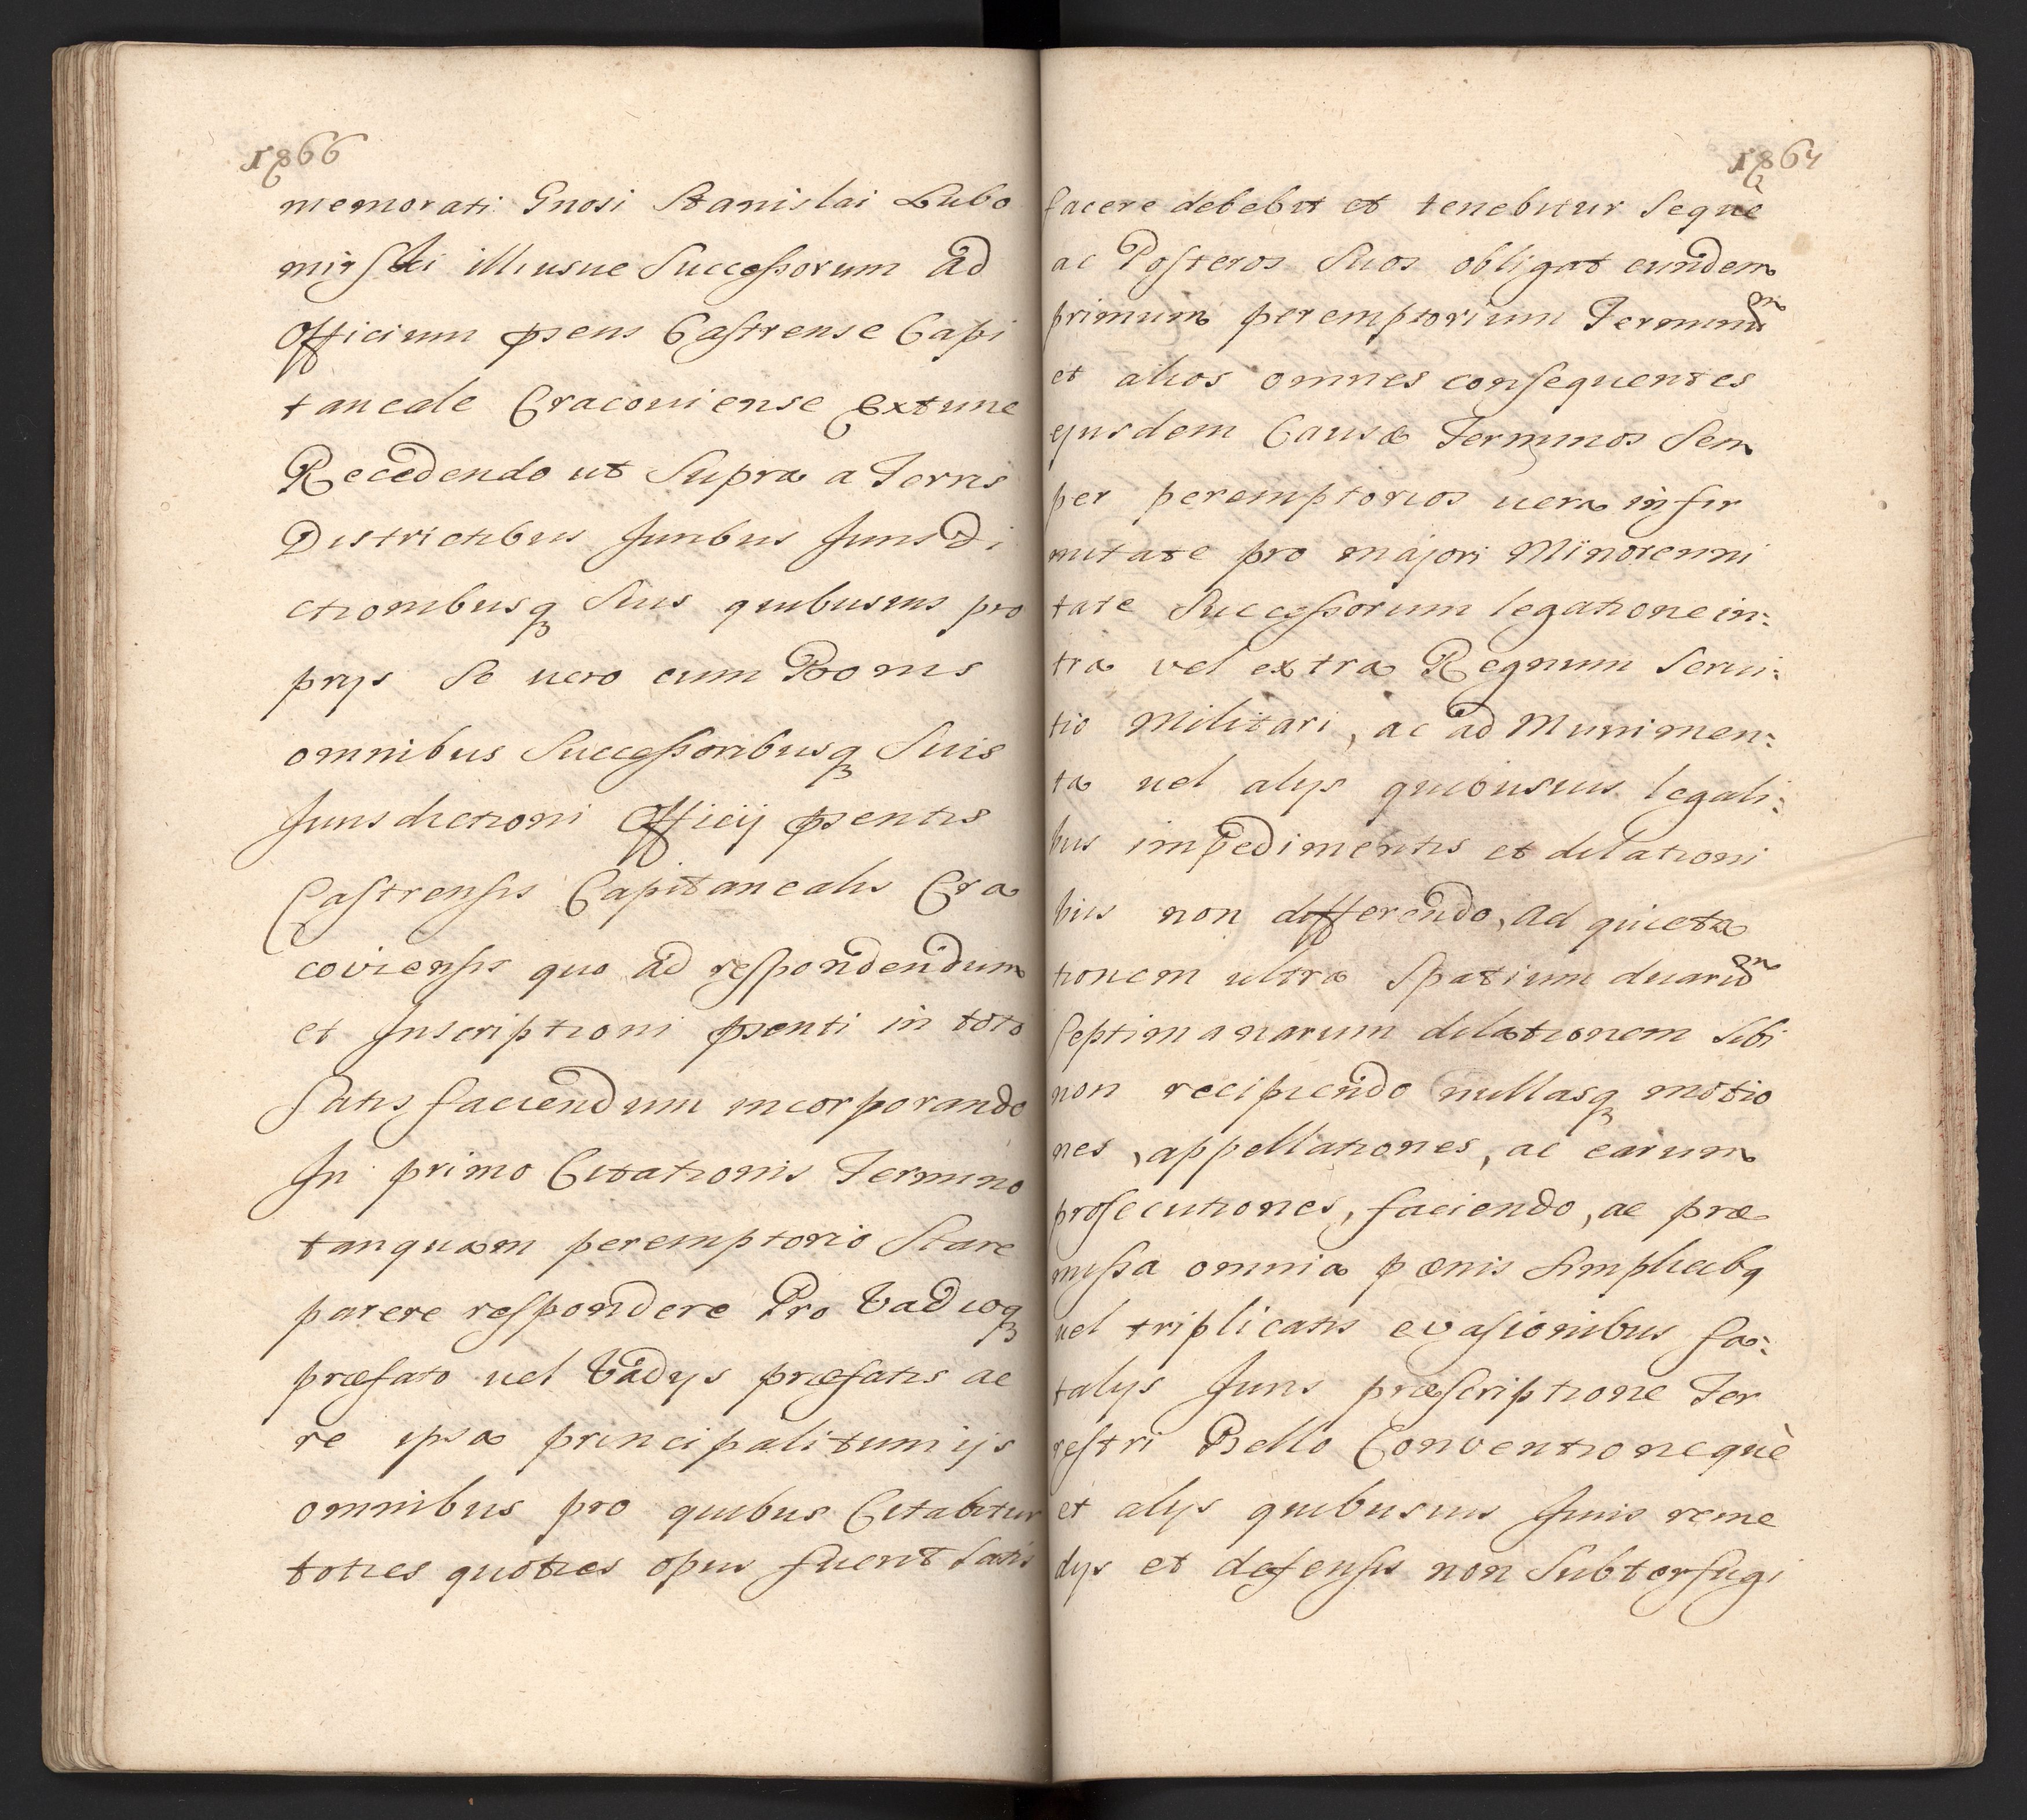 1866
memorati Gnosi Stanislai Lubo
mirski illiusue Successorum ad
Officium psens Castrense Capi
taneale Cracouiense Extunc
Recedendo ut Supra a Terris
Districtibus Juribus Jurisdi
ctionibusq Suis quibusuis pro
prijs Se uero cum Bonis
omnibus Successoribusq Suis
Jurisdictioni Officij psentis
Castrensis Capitanealis Cra
coviensis quo ad respondendum
et Inscriptioni psenti in toto
Satis faciendum incorporando
In primo Citationis Termino
tanquam peremptorio Stare
parere respondere Pro Vadioq
præfato uel Vadijs præfatis ac
re ipsa principali tum ijs
omnibus pro quibus Citabitur
toties quoties opus fuerit Satis
1867
facere debebit et tenebitur Seque
ac Posteros Suos obligat eundem
primum peremptorium Terminum
et alios omnes consequentes
ejusdem Causæ Terminos Sem
per peremptorios uera infir
mitate pro majori Minorenni
tate Successorum legatione in:
tra vel extra Regnum Serui:
tio Militari, ac ad Munimen:
ta uel alijs quibusuis legali:
bus impedimentis et dilationi
bus non differendo, ad quieta
tionem ultra Spatium duarum
septimanarum dilationem Sibi
non recipiendo nullasq motio
nes, appellationes, ac earum
prosecutiones, faciendo, ac præ
missa omnia pænis Simplicibq
uel triplicatis evasionibus fa:
talijs Juris præscriptione Ter
restri Bello Conventioneque
et alijs quibusuis Juris reme
dijs et defensis non Subterfugi